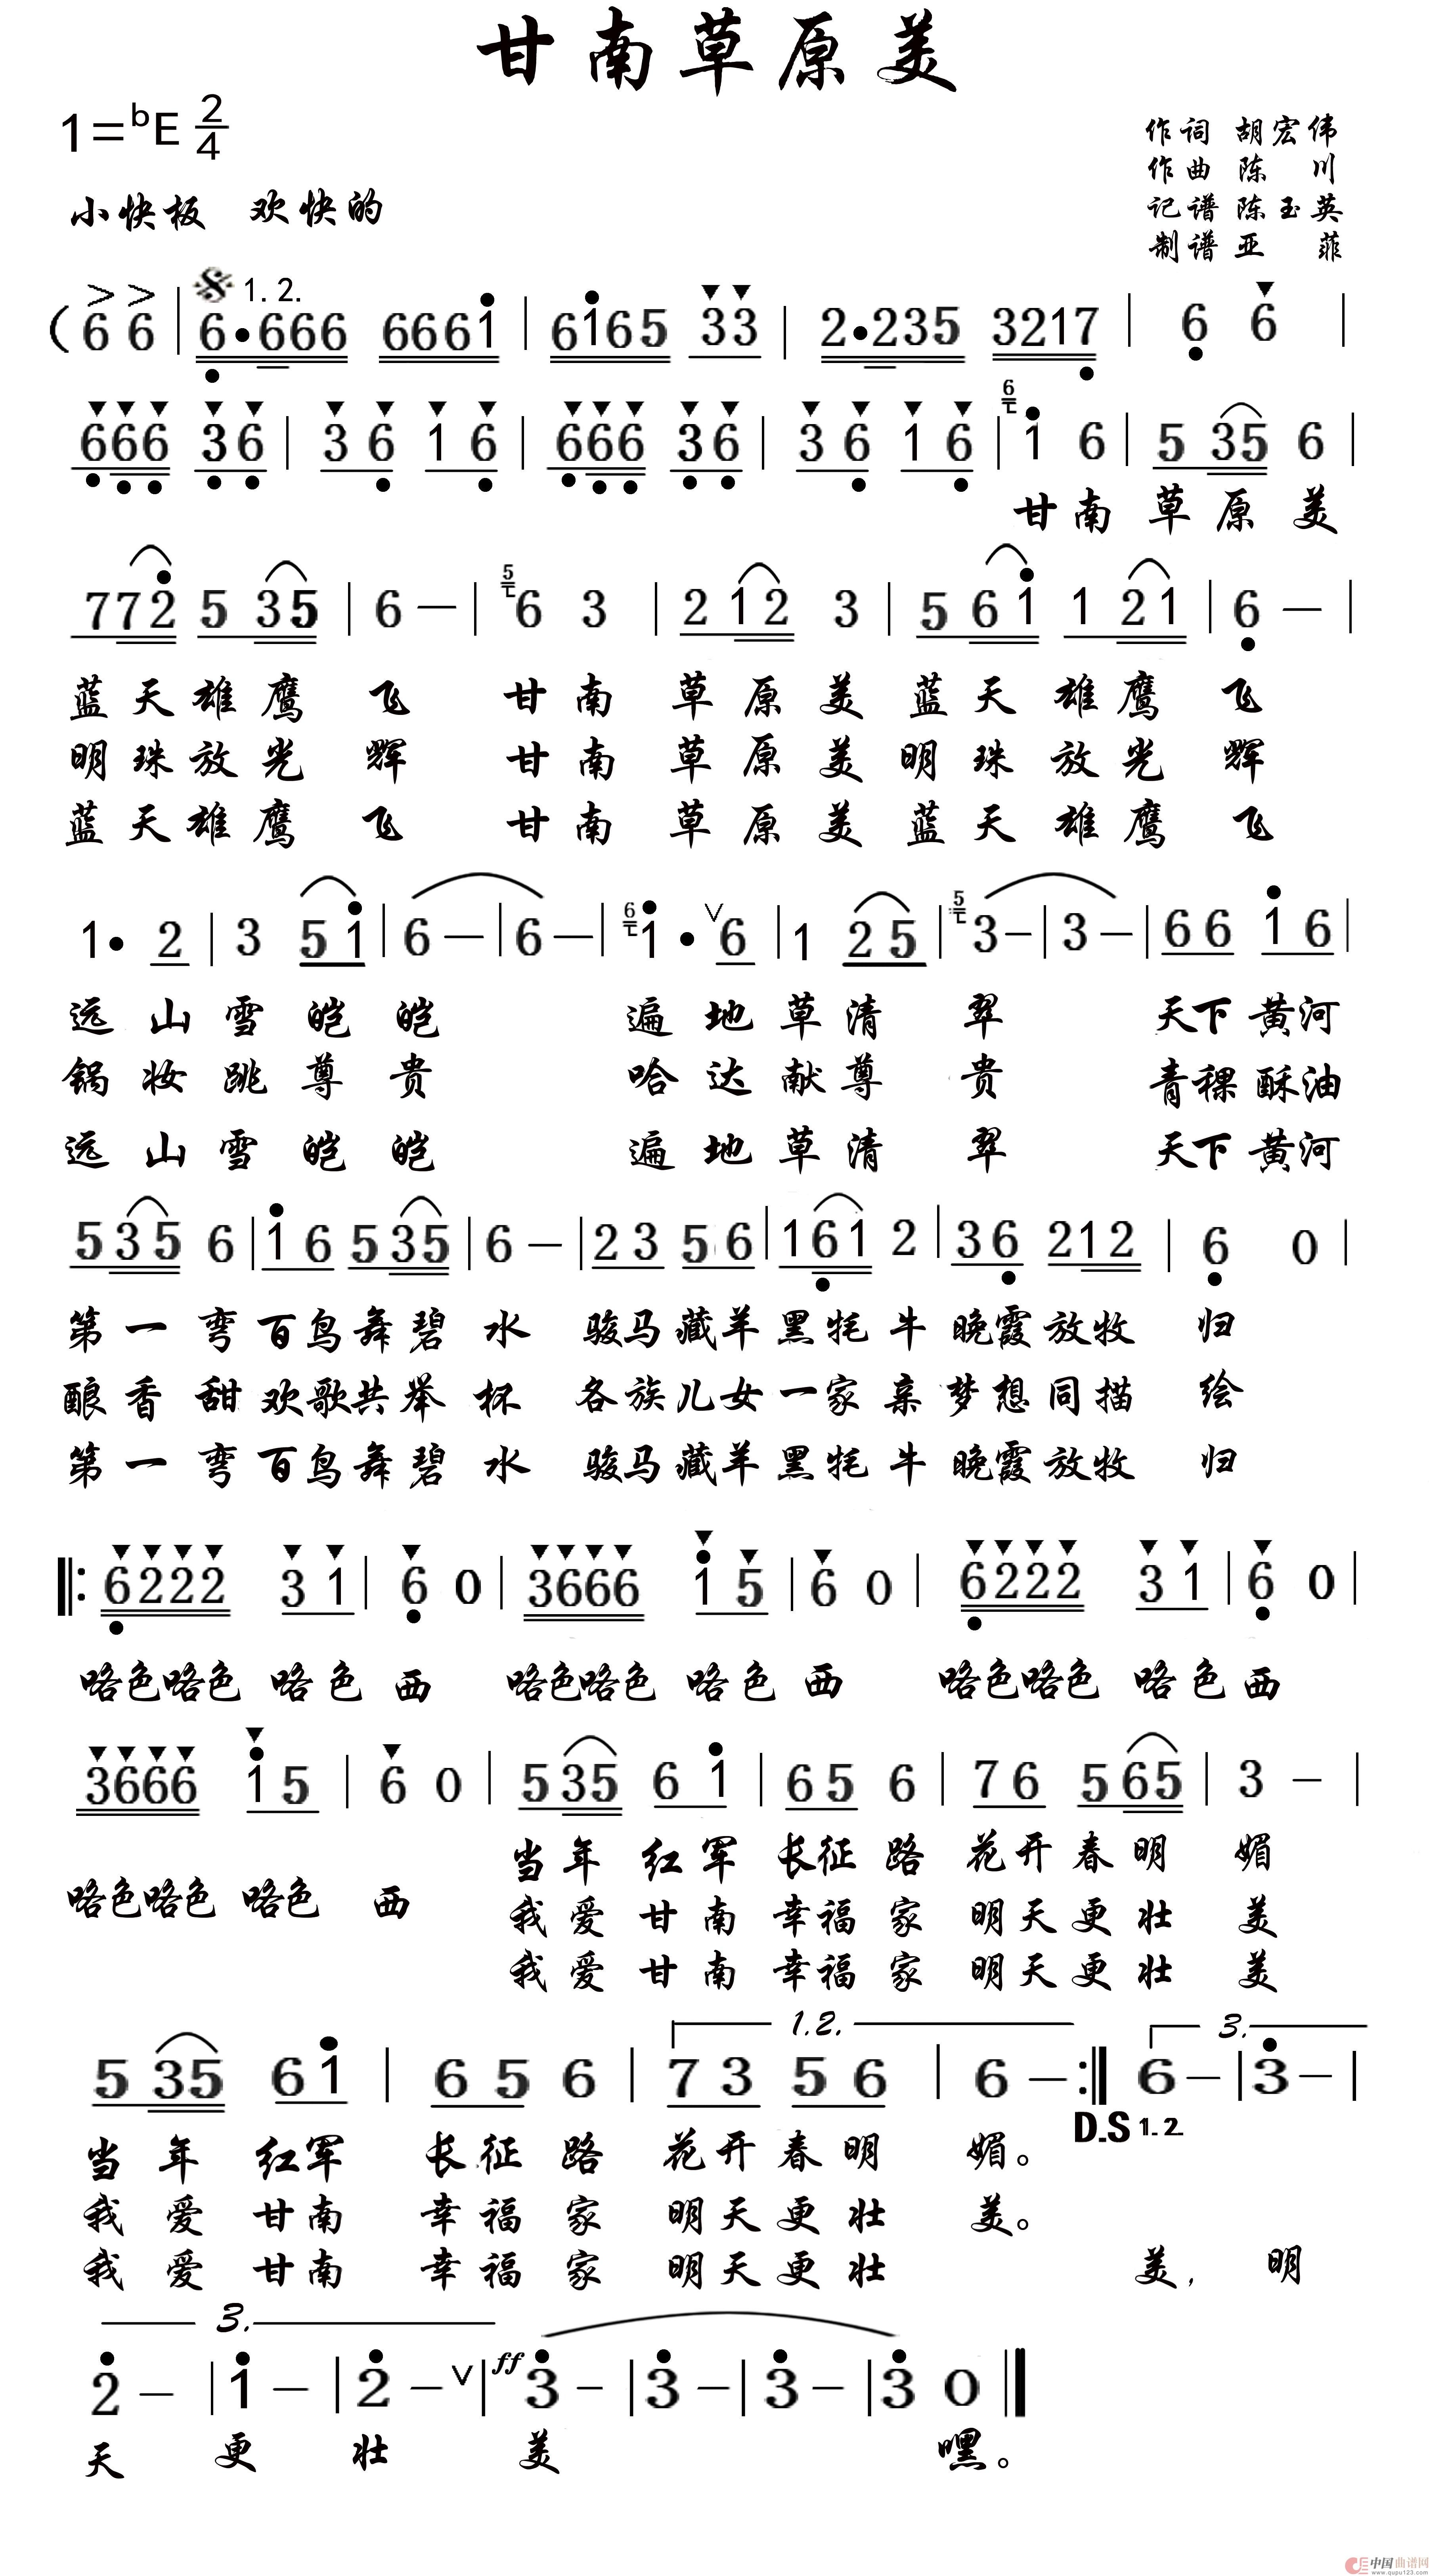 甘南草原美
1=bE 2/4
作词 胡宏伟
作曲 陈 川
小快板 欢快的
记谱 陈玉英
制谱 亚 菲
1.2.
(6 6 | 6·666 6661 | 6165 33 | 2·235 3217 | 6 6 |
666 36 | 36 16 | 666 36 | 36 16 | 6 1 6 | 5 35 6 |
甘南 草原美
772 5 35 | 6 — | 5 6 3 | 2 12 3 | 5 61 1 21 | 6 — |
蓝天雄鹰 飞 甘南 草原美 蓝天 雄鹰 飞
明珠放光 辉 甘南 草原美 明珠 放光 辉
蓝天雄鹰 飞 甘南 草原美 蓝天 雄鹰 飞
1· 2 | 3 51 | 6 — | 6 — | 6 1· ∨6 | 1 25 | 5 3 — | 3 — | 66 16 |
远山雪皑皑 遍地草清翠 天下黄河
锅妆跳尊贵 哈达献尊贵 青稞酥油
远山雪皑皑 遍地草清翠 天下黄河
535 6 | 16 535 | 6 — | 23 56 | 161 2 | 36 212 | 6 0 |
第一弯百鸟舞碧水 骏马藏羊黑牦牛晚霞放牧 归
酿香甜欢歌共举杯 各族儿女一家亲梦想同描 绘
第一弯百鸟舞碧水 骏马藏羊黑牦牛晚霞放牧 归
‖: 6222 31 | 6 0 | 3666 15 | 6 0 | 6222 31 | 6 0 |
咯色咯色 咯色西 咯色咯色 咯色西 咯色咯色 咯色西
3666 15 | 6 0 | 535 61 | 65 6 | 76 565 | 3 — |
当年 红军 长征路 花开春明 媚
咯色咯色 咯色 西
我爱 甘南 幸福家 明天更壮 美
我爱 甘南 幸福家 明天更壮 美
1.2. 3.
5 35 61 | 65 6 | 73 56 | 6 — :‖ 6 — | 3 — |
D.S 1.2.
当年 红军 长征路 花开春明 媚。
我爱 甘南 幸福家 明天更壮 美。
我爱 甘南 幸福家 明天更壮 美, 明
3.
2 — | 1 — | 2 — ∨| ff 3 — | 3 — | 3 — | 3 0 ‖
天 更 壮 美 嘿。
中国曲谱网
www.qupu123.com